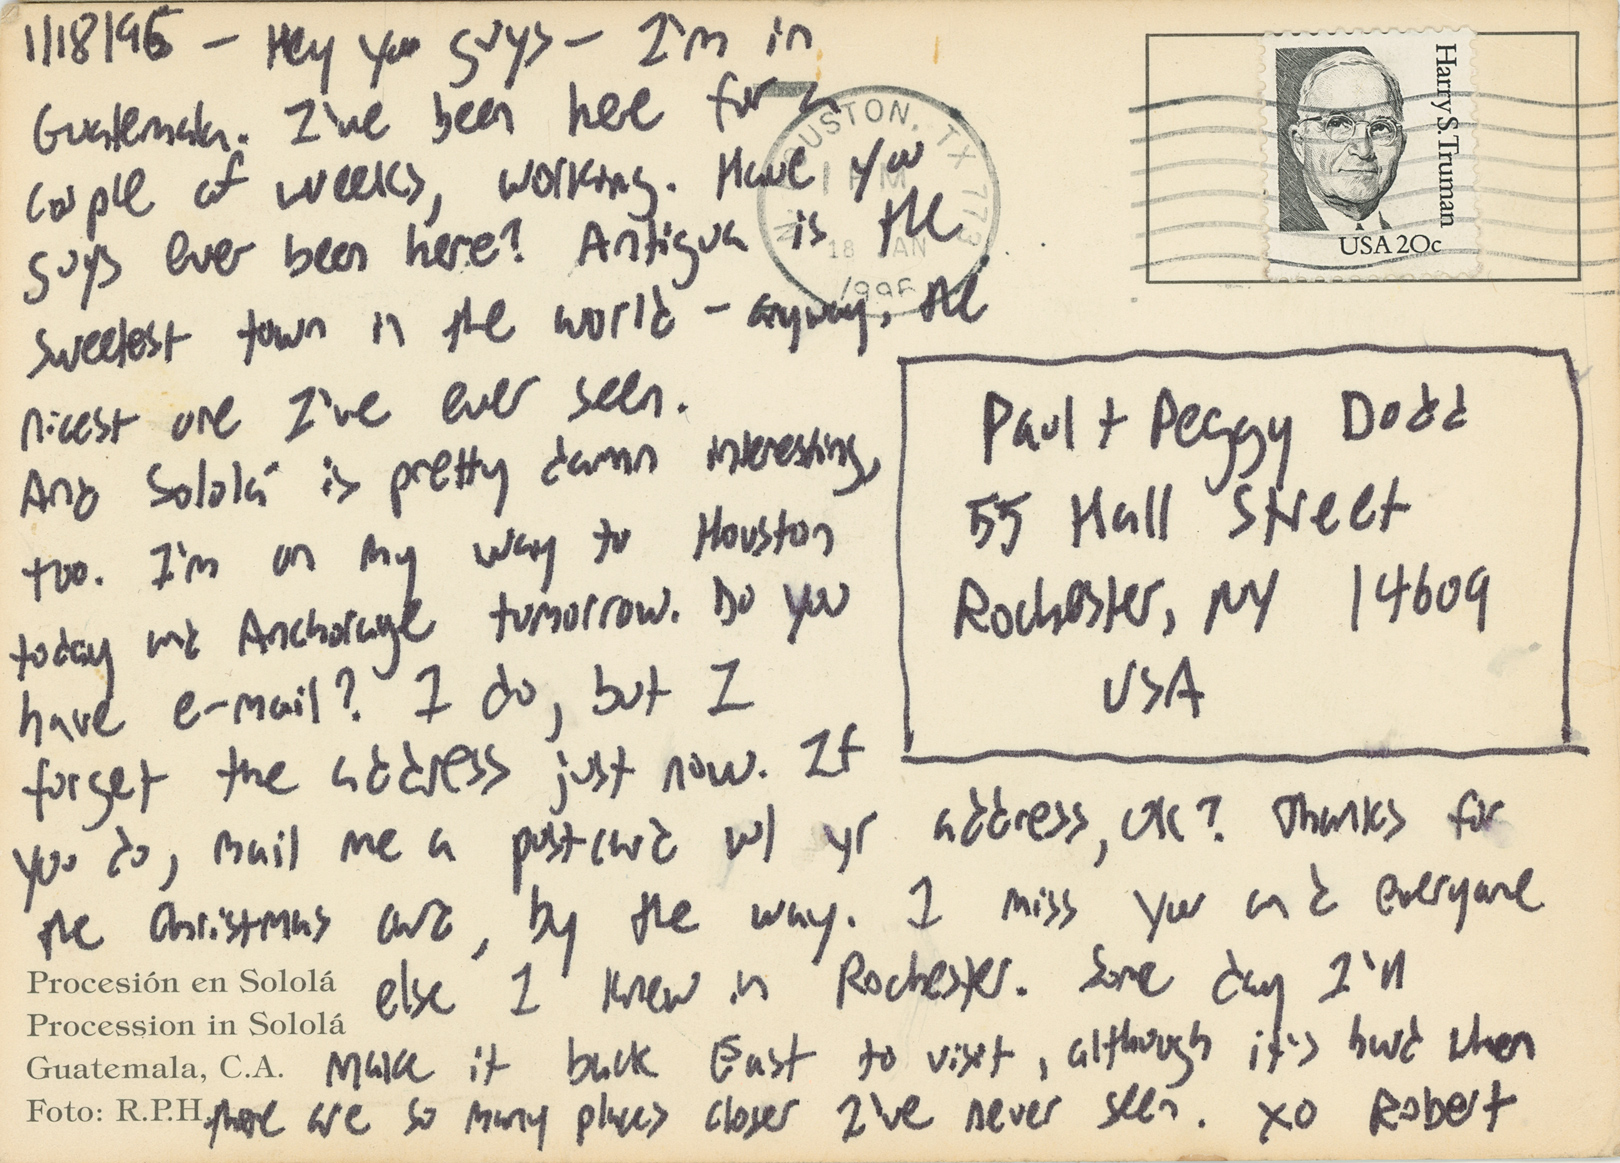 1/18/96 – Hey you guys – I'm in
Guatemala. I've been here for a
couple of weeks, working. Have you
guys ever been here? Antigua is the
sweetest town in the world – anyway, the
nicest one I've ever seen.
And Sololá is pretty damn interesting,
too. I'm on my way to Houston
today and Anchorage tomorrow. Do you
have e-mail? I do, but I
forget the address just now. If
you do, mail me a postcard w/ yr address, OK? Thanks for
the Christmas card, by the way. I miss you and everyone
else I knew in Rochester. Some day I'll
make it back East to visit, although it's hard when
there are so many places closer I've never seen. XO Robert
Procesión en Sololá
Procession in Sololá
Guatemala, C.A.
Foto: R.P.H.
HOUSTON, TX
PM
18 JAN
1996
Harry S. Truman
USA 20c
Paul + Peggy Dodd
55 Hall Street
Rochester, NY 14609
USA